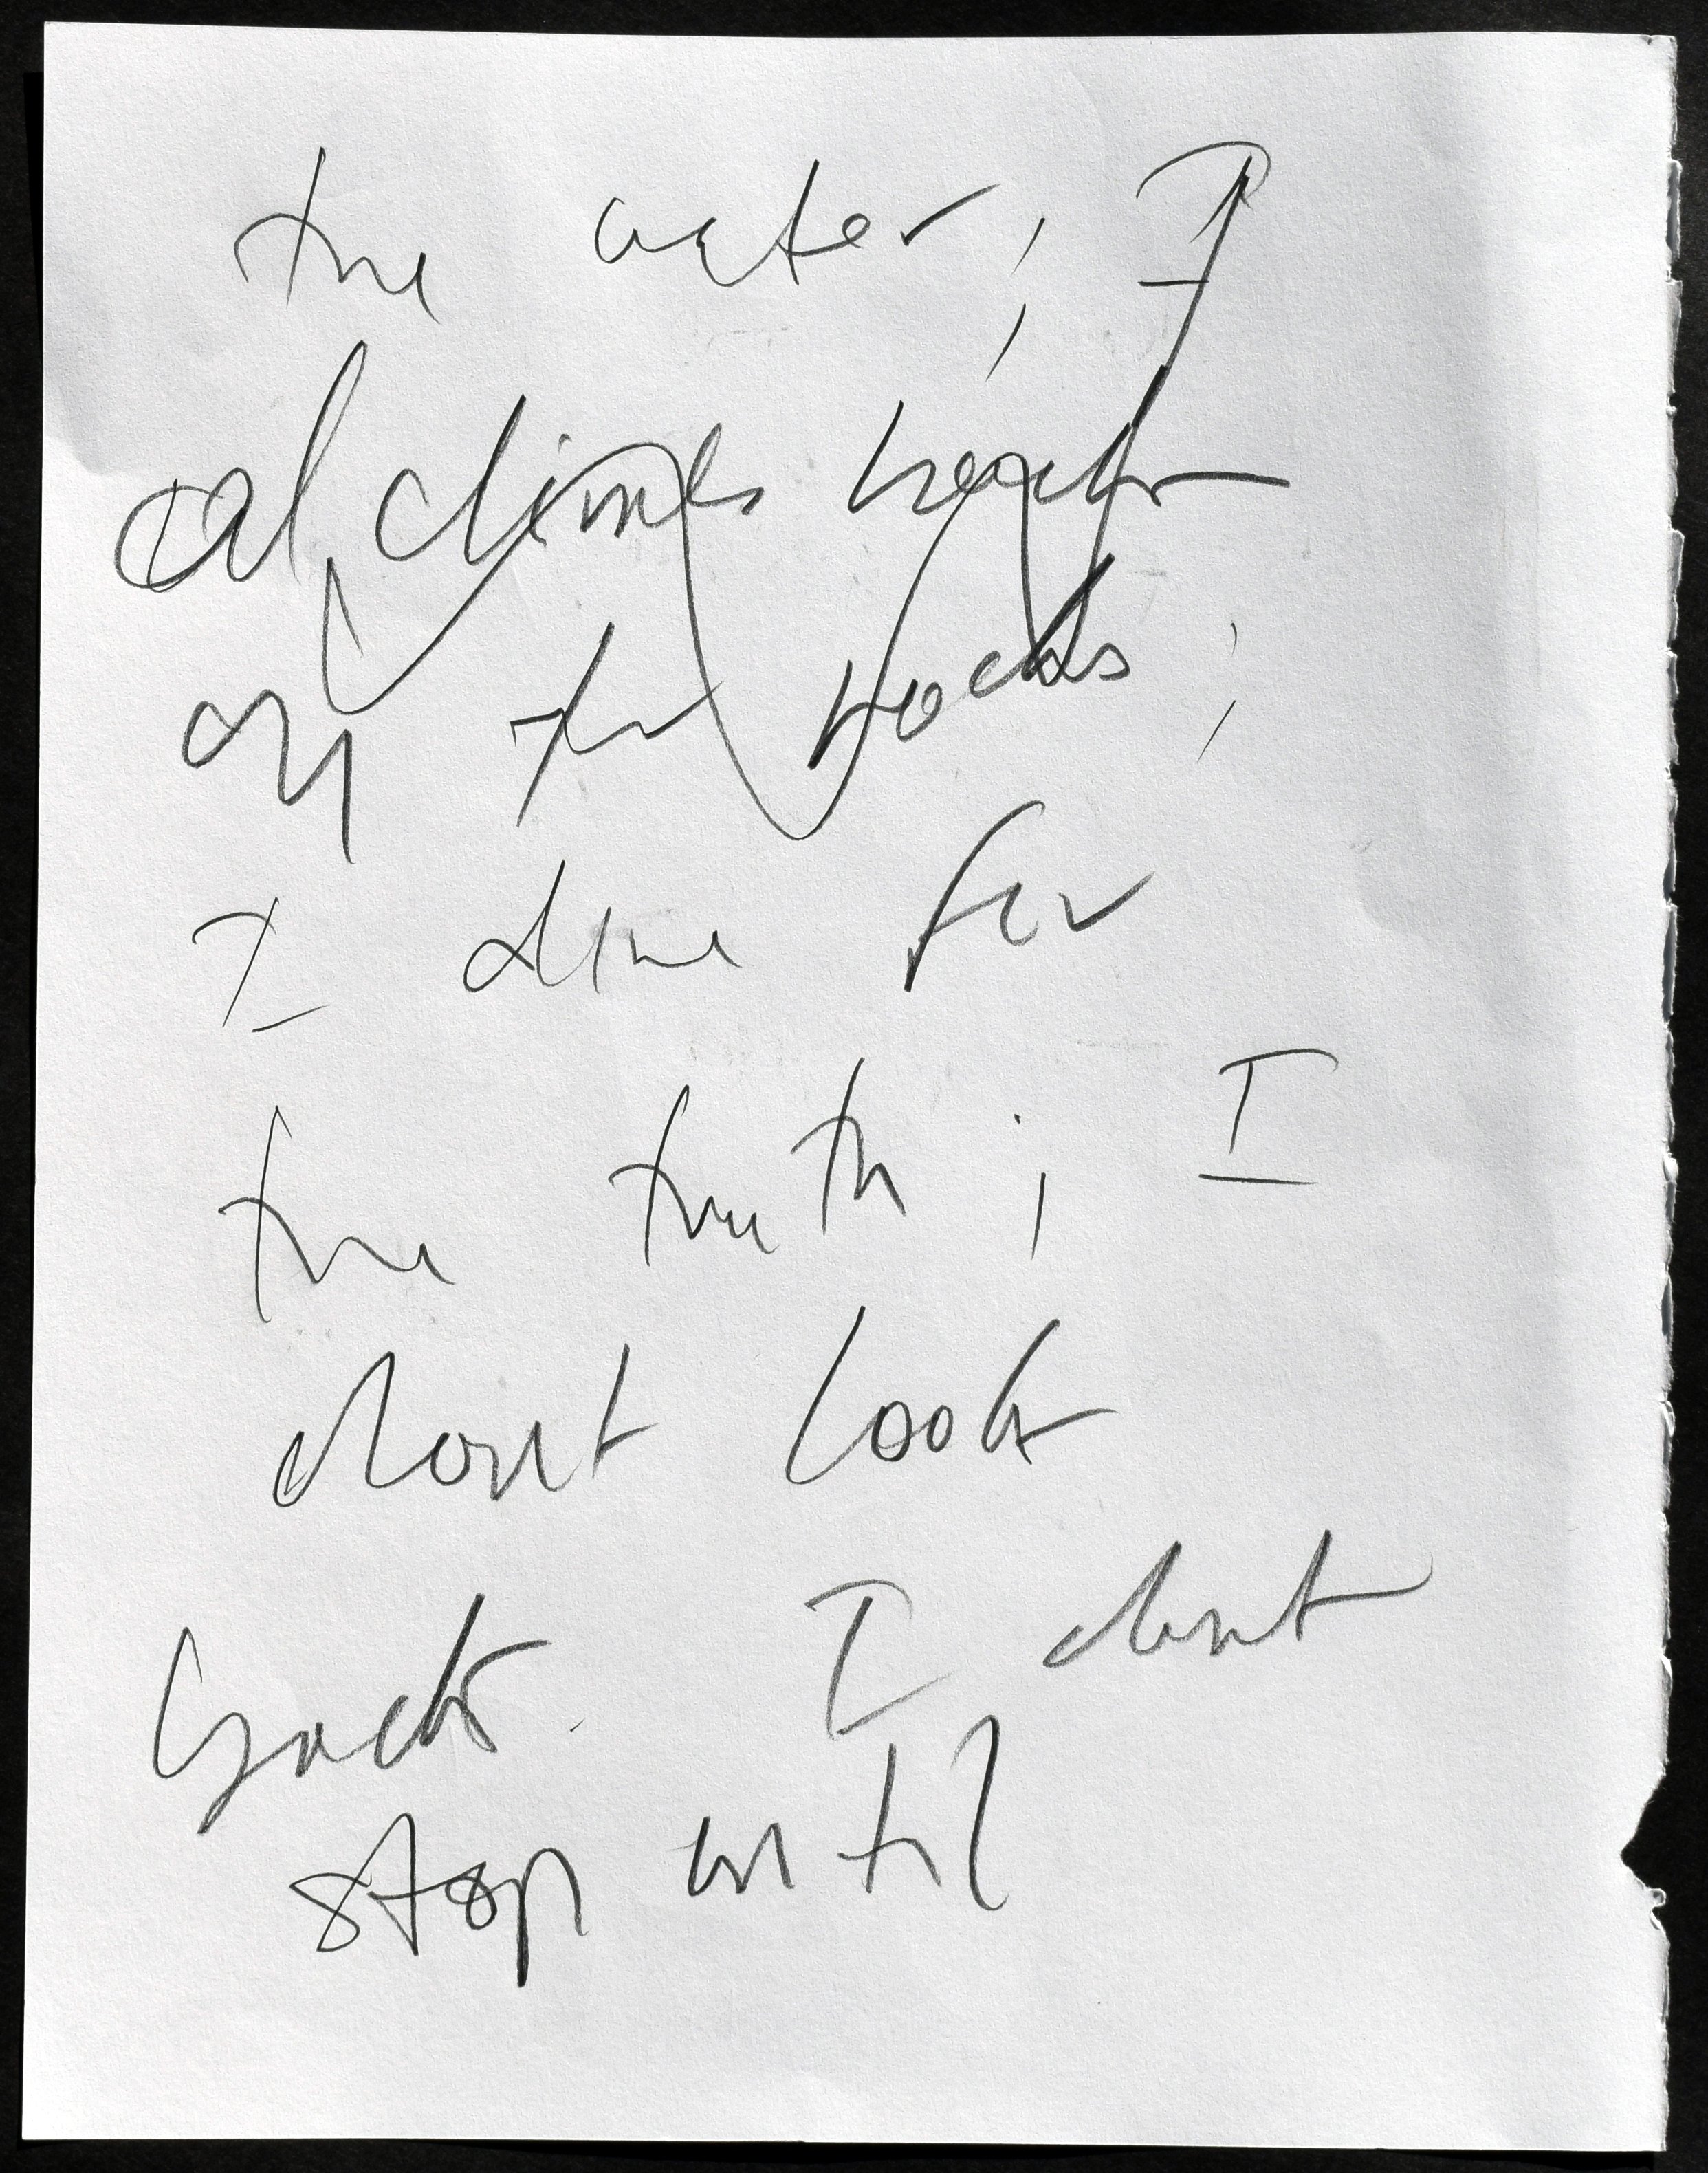 the water; I
climb back
on the rocks;
I dive for
the truth; I
don't look
back. I don't
stop until